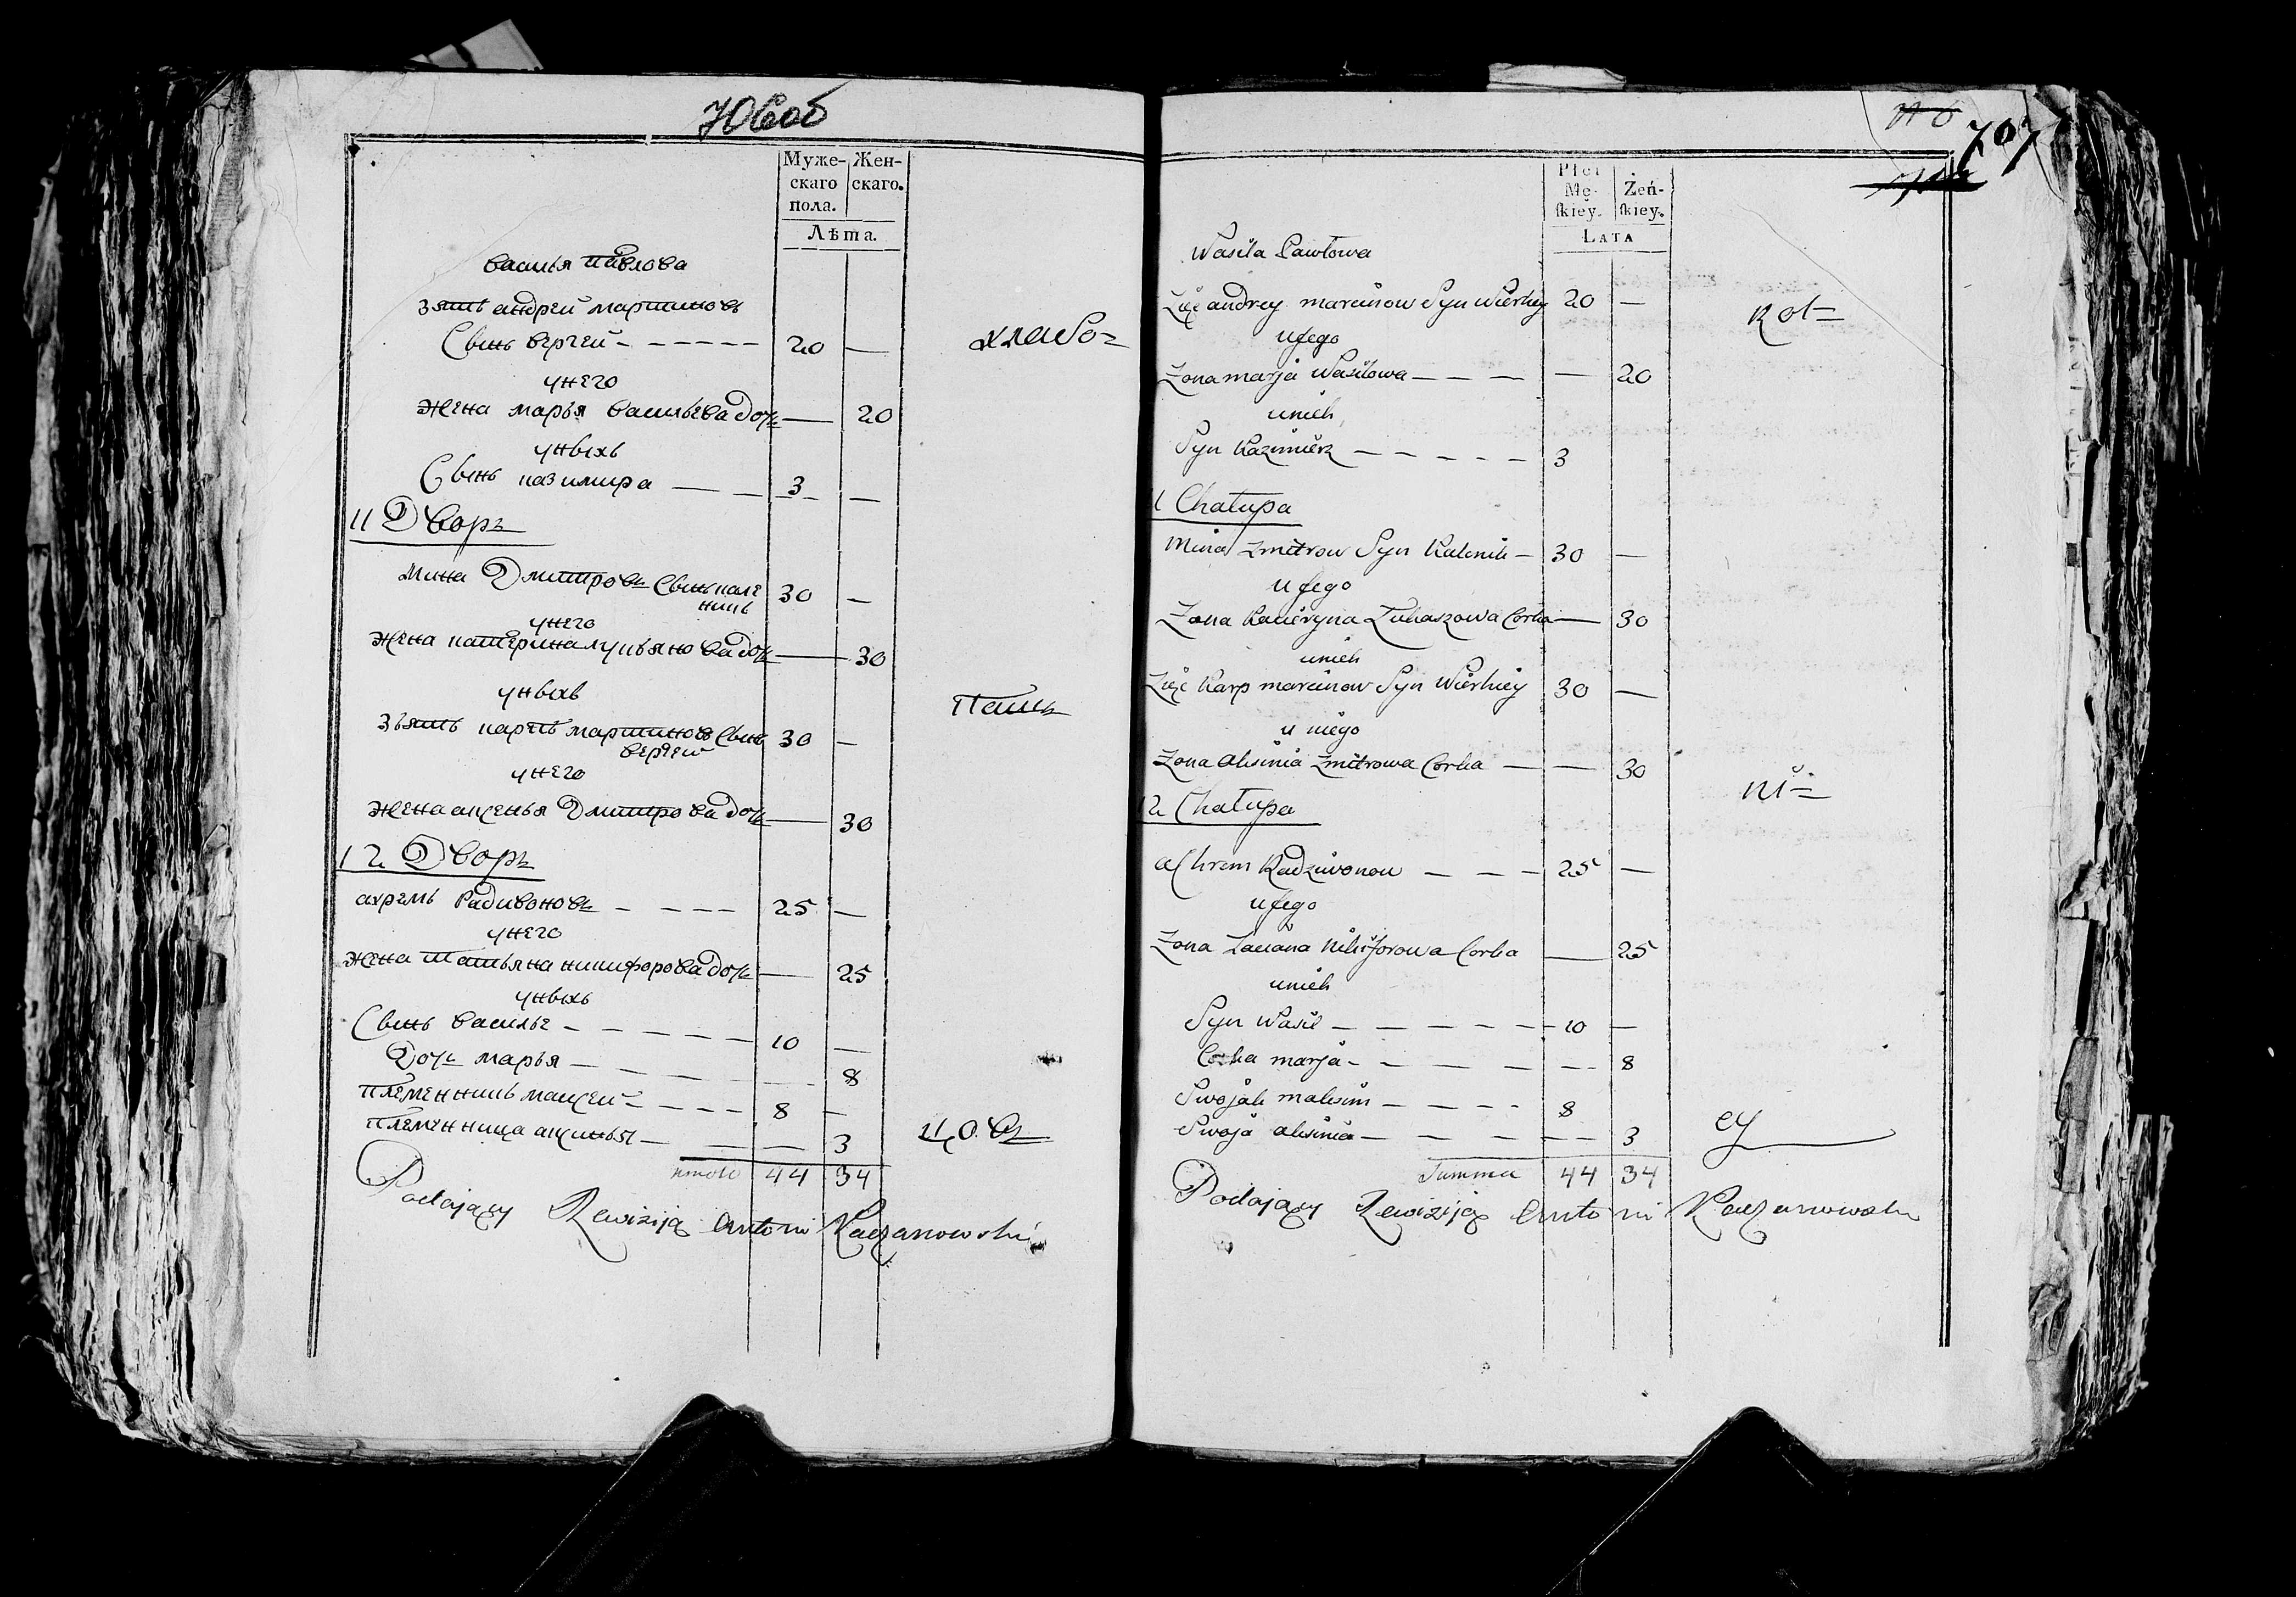 706об
Муже- Жен-
скаго скаго.
пола.
Лѣта.
василья павлова
зять андрей мартиновъ
Сынъ вергей 20 —
хлебо=
унего
жена марья васильева дочь — 20
уныхъ
Сынъ казимира 3 —
11 Дворъ
мина Дмитровъ Сынъ кале
никъ 30 —
унего
жена катерина лукьянова дочь — 30
уныхъ
пашъ
зьять карпъ мартиновъ Сынъ
вергей 30 —
унего
жена аксенья Дмитрова дочь — 30
12 Дворъ
ахремъ Радивоновъ 25 —
унего
жена татьяна никифорова дочь — 25
уныхъ
Сынъ василье 10 —
Дочь марья — 8
племенникъ максей 8 —
племенница аксинья — 3
цовъ
44 34
Podający Rewiziją Antoni Kaczanowski
707
Płci
Mę- Żeń-
ſkiey. ſkiey.
LATA
Wasila Pawłowa
Zięć andrey marcinow Syn Wierhey 20 —
Rol=
uſego
Zona marja Wasilowa — 20
unich
Syn Kazimierz 3
11 Chałupa
Mina Zmitrow Syn Kalenik 30 —
uſego
Zona Kacieryna Łukaszowa Corka — 30
unich
Zięć Karp marcinow Syn Wierhiey 30 —
u niego
Zona Aksinia Zmitrowa Corka — 30
ni=
12 Chałupa
Achrem Radziwonow 25 —
uſego
Zona Taciana Nikiforowa Corka — 25
unich
Syn Wasil 10 —
Corka marja — 8
Swojak maksim 8
Swoja aksinia — 3
cy
Summa 44 34
Podający Rewizyją Antoni Kaczanowski